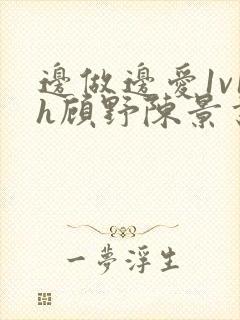 邊做邊愛1v1
h顾野陈景
一夢浮生